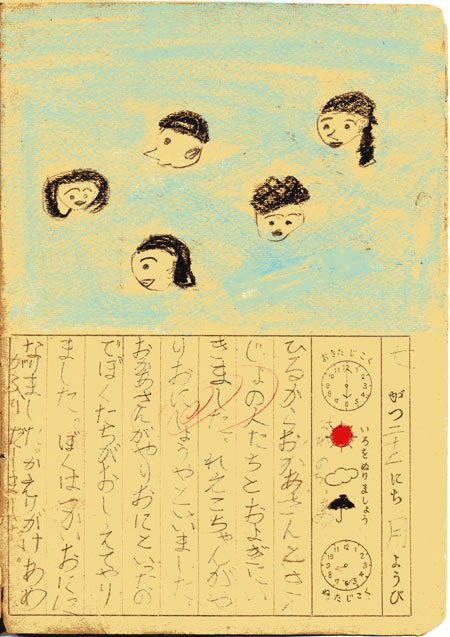 七がつ二十二にち月ようび
おきたじこく
いろをぬりましょう
ねたじこく
ひるからおかあさんときん
じょの人たちとおよぎにい
きました。れえこちゃんがや
りおにしようやといいました。
おかあさんがやりおにといったの
でぼくたちがおしえてやり
ました。ぼくは一かいおにに
なりました。かえりがけあめ
がふりだしました。